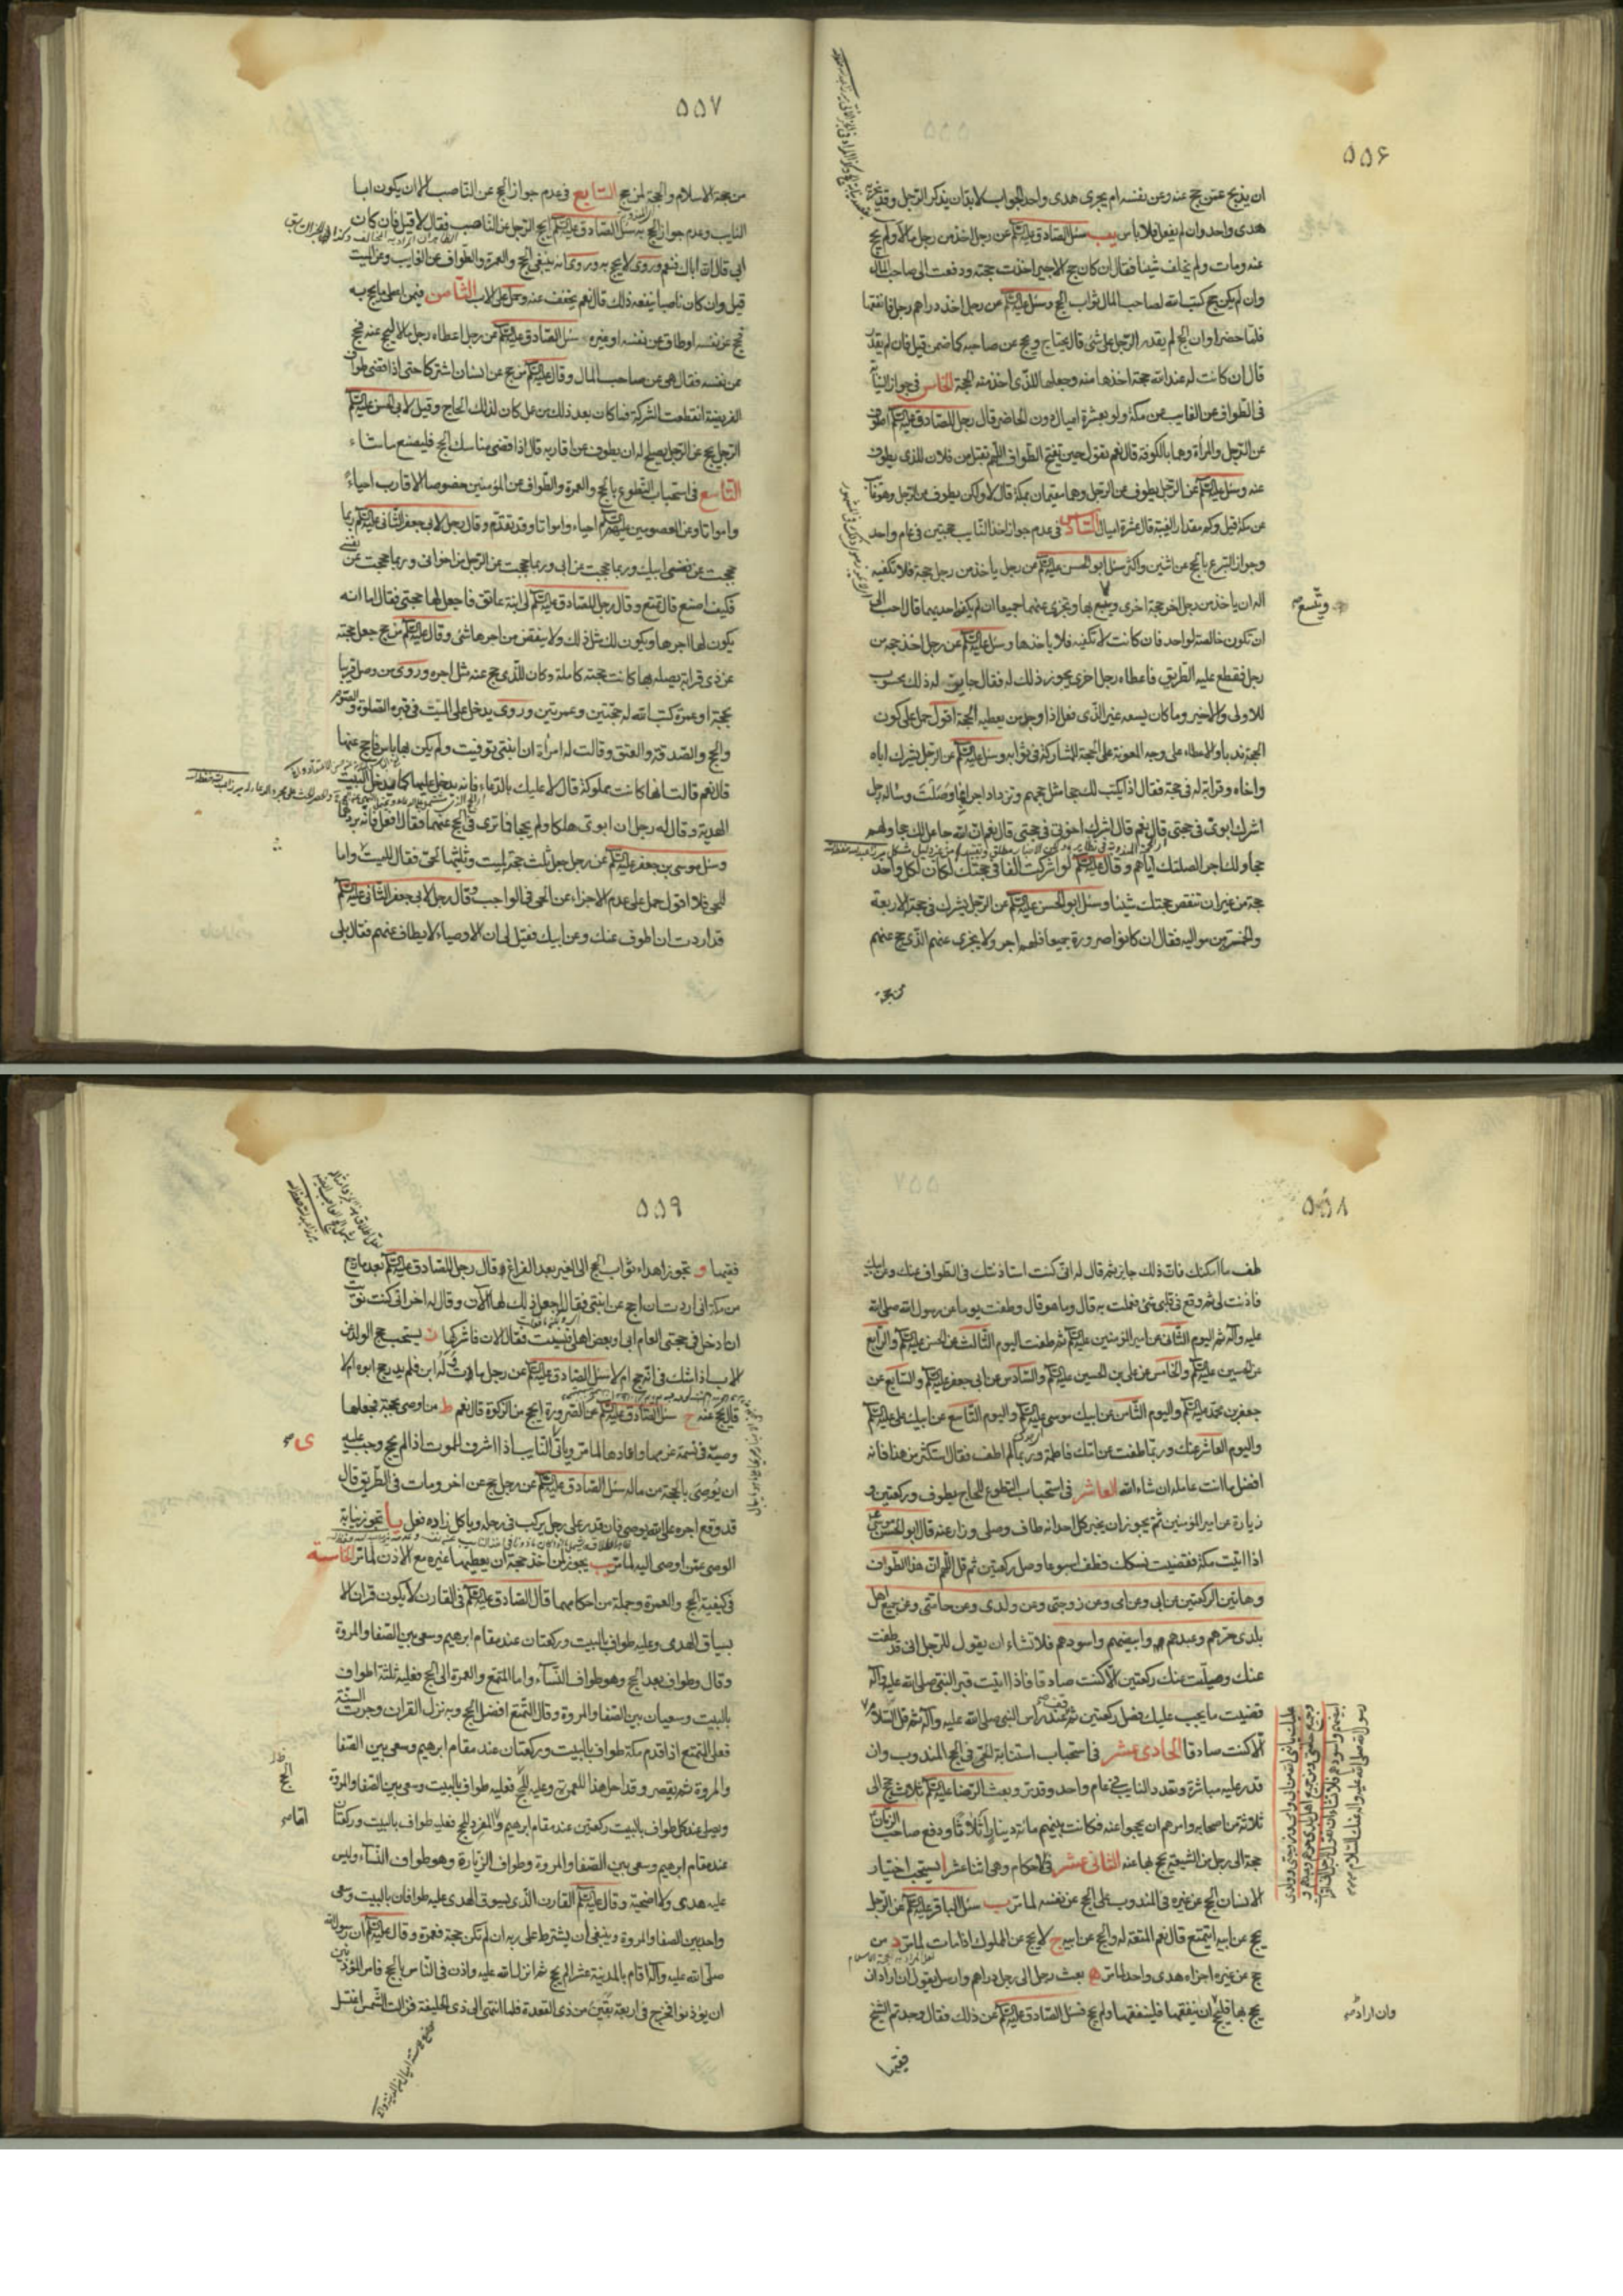 ۵۵۶
ان يذبح عمن حج عنه وعن نفسه ام يجزى هدى واحد الجواب لا بد ان يذكر الرجل وقد يجزيه
هدى واحد وان لم يفعل فلا باس يب سئل الصادق عليه السلام عن رجل اخذ من رجل مالا ولم يحج
عنه ومات ولم يخلف شيئا فقال ان كان حج الاجير اخذت حجته ودفعت الى صاحب المال
وان لم يكن حج كتب الله لصاحب المال ثواب الحج وسئل عليه السلام عن رجل اخذ دراهم رجل فانفقها
فلما حضر اوان الحج لم يقدر الرجل على شئ قال يحتاج ويحج عن صاحبه كما ضمن قيل فان لم يقدر
قال ان كانت له عند الله حجة اخذها منه وجعلها للذى اخذ منه الحجة الخامس فى جواز النيابة
فى الطواف عن الغايب من مكة ولو بعشرة اميال دون الحاضر قال رجل للصادق عليه السلام اطوف
عن الرجل والمرأة وهما بالكوفة قال نعم تقول حين تفتح الطواف اللهم تقبل من فلان للذى يطوف
عنه وسئل عليه السلام عن الرجل يطوف عن الرجل وهما مقيمان بمكة قال لا ولكن يطوف عن الرجل وهو غايب
عن مكة قيل وكم مقدار الغيبة قال عشرة اميال السادس فى عدم جواز اخذ النايب حجتين فى عام واحد
وجواز التبرع بالحج عن اثنين واكثر سئل ابو الحسن عليه السلام عن رجل ياخذ من رجل حجة فلا تكفيه
اله ان ياخذ من رجل اخر حجة اخرى ويتسع بها وتجزى عنهما جميعا ان لم يكفه احديهما قال احب الى
ويتسع صح
ان تكون خالصة لواحد فان كانت لا تكفيه فلا ياخذها وسئل عليه السلام عن رجل اخذ حجة من
رجل فقطع عليه الطريق فاعطاه رجل اخرى يجوز ذلك له فقال جايز له ذلك محسوب
للاولى والاخير وما كان يسعه غير الذى فعل اذا وجد من يعطيه الحجة اقول حمل على كون
الحجة ندبا والاعطاء على وجه المعونة على الحجة للمشاركة فى ثوابه وسئل عليه السلام عن الرجل يشرك اباه
واخاه وقرابته فى حجة فقال اذا يكتب لك حجا مثل حجهم وتزداد اجرا بما وصلت وساله رجل
اشرك ابوى فى حجتى قال نعم قال اشرك اخوتى فى حجتى قال نعم ان الله جاعل لك حجا ولهم
حجا ولك اجر الصلتك اياهم وقال عليه السلام لو اشركت الفا فى حجتك لكان لكل واحد
حجة من غير ان تنقص حجتك شيئا وسئل ابو الحسن عليه السلام عن الرجل يشرك فى حجة الاربعة
والخمسة من مواليه فقال ان كانوا صرورة جميعا فلهم اجر ولا يجزى عنهم الذى حج عنهم
من حجة
۵۵۷
من حجة الاسلام والحجة لمن حج السابع فى عدم جواز الحج عن الناصب الا ان يكون ابا
النايب وعدم جواز الحج به سئل الصادق عليه السلام ايحج الرجل عن الناصب فقال لا قيل فان كان
ابى قال ان اباك فنعم وروى لا يحج به وروى انه ينبغى الحج والعمرة والطواف عن الغايب وعن الميت
قيل وان كان ناصبا ينفعه ذلك قال نعم يخفف عنه وحمل على الاب الثامن فيمن اعطى ما يحج به
فحج عن نفسه او طاف عن نفسه او غيره سئل الصادق عليه السلام عن رجل اعطاه رجل مالا ليحج عنه فحج
عن نفسه فقال هو عن صاحب المال وقال عليه السلام من حج عن انسان اشتركا حتى اذا قضى طواف
الفريضة انقطعت الشركة فما كان بعد ذلك من عمل كان لذلك الحاج وقيل لابى الحسن عليه السلام
الرجل يحج عن الرجل يصلح له ان يطوف عن اقاربه قال اذا قضى مناسك الحج فليصنع ما شاء
التاسع فى استحباب التطوع بالحج والعمرة والطواف عن المؤمنين خصوصا الاقارب احياء
وامواتا وعن المعصومين عليهم السلام احياء وامواتا وقد تقدم وقال رجل لابى جعفر الثانى عليه السلام ربما
حججت عن ابيك وربما حججت عن ابى وربما حججت عن الرجل من اخوانى وربما حججت عن نفسى
فكيف اصنع قال تمتع وقال رجل للصادق عليه السلام لى ابنة عاتق فاجعل لها حجتى فقال اما انه
يكون لها اجرها ويكون لك مثل ذلك ولا ينقص من اجرها شئ وقال عليه السلام من حج جعل حجته
عن ذى قرابته يصله بها كانت حجته كاملة وكان للذى حج عنه مثل اجره وروى من وصل قريبا
بحجة او عمرة كتب الله له حجتين وعمرتين وروى يدخل على الميت فى قبره الصلوة والصوم
والحج والصدقة والعتق وقالت له امرأة ان ابنتى توفيت ولم يكن بها باس فاحج عنها
قال نعم قالت انها كانت مملوكة قال لا عليك بالدعاء فانه يدخل عليها كما يدخل البيت
الهدية وقال له رجل ان ابوى هلكا ولم يحجا فما ترى فى الحج عنهما فقال افعل فانه يرد لهما
وسئل موسى بن جعفر عليه السلام عن رجل جعل ثلث حجته لميت وثلثيها لحى فقال للميت واما
للحى فلا اقول حمل على عدم الاجزاء عن الحى فى الواجب وقال رجل لابى جعفر الثانى عليه السلام
قد اردت ان اطوف عنك وعن ابيك فقيل لى ان الاوصياء لا يطاف عنهم فقال بلى
۵۵۸
طف ما امكنك فان ذلك جايز ثم قال له انى كنت استاذنتك فى الطواف عنك وعن ابيك
فاذنت لى ثم وقع فى قلبى شئ فعملت به قال وما هو قال وطفت يوما عن رسول الله صلى الله
عليه وآله ثم اليوم الثانى عن امير المؤمنين عليه السلام ثم طفت اليوم الثالث عن الحسن عليه السلام والرابع
عن الحسين عليه السلام والخامس عن على بن الحسين عليه السلام والسادس عن ابى جعفر عليه السلام والسابع عن
جعفر بن محمد عليه السلام واليوم الثامن عن ابيك موسى عليه السلام واليوم التاسع عن ابيك على عليه السلام
واليوم العاشر عنك وربما طفت عن امك فاطمة وربما لم اطف فقال استكثر من هذا فانه
افضل ما انت عامله ان شاء الله العاشر فى استحباب التطوع للحاج بطوف وركعتين و
زيارة عن امير المؤمنين ثم يجوز ان يخبر كل احد انه طاف وصلى وزار عنه قال ابو الحسن موسى ع
اذا اتيت مكة فقضيت نسكك فطف اسبوعا وصل ركعتين ثم قل اللهم ان هذا الطواف
وهاتين الركعتين عن ابى وعن امى وعن زوجتى وعن ولدى وعن حامتى وعن جميع اهل
بلدى حرهم وعبدهم وابيضهم واسودهم فلا تشاء ان يقول للرجل انى قد طفت
عنك وصليت عنك ركعتين الا كنت صادقا فاذا اتيت قبر النبى صلى الله عليه وآله
قضيت ما يجب عليك فصل ركعتين ثم قف عند راس النبى صلى الله عليه وآله ثم قل السلام
الا كنت صادقا الحادى عشر فى استحباب استنابة الحى فى الحج المندوب وان
قدر عليه مباشرة وتعدد النايب فى عام واحد وقد مر وبعث الرضا عليه السلام ثلاث حجج الى
ثلاثة من اصحابه وامرهم ان يحجوا عنه فكانت بينهم مائة دينار اثلاثا ودفع صاحب الزمان
حجة الى رجل من الشيعة يحج بها عنه الثانى عشر فى احكام وهى اثنا عشر ا يستحب اختيار
الانسان الحج عن غيره فى المندوب على الحج عن نفسه لما مر ب سئل الباقر عليه السلام عن الرجل
يحج عن ابيه ايتمتع قال نعم المتعة له والحج عن ابيه ج لا يحج عن المملوك اذا مات لما مر د من
حج عن غيره اجزاه هدى واحد لما مر ه بعث رجل الى رجل دراهم وارسل يقول ان اراد ان
يحج بها فليحج ان ينفقها فلينفقها ولم يحج فسئل الصادق عليه السلام عن ذلك فقال وجدتم الشيخ
وان اراد صح
فقيها
۵۵۹
فقيها و تجوز اهداء ثواب الحج الى الغير بعد الفراغ وقال رجل للصادق عليه السلام بعد ما رجع
من مكة انى اردت ان احج عن ابنتى فقال اجعل ذلك لها الآن وقال له اخر انى كنت نويت
ان ادخل فى حجتى العام ابى وبعض اهلى فنسيت فقال الان فاشركها ز يستحب حج الولد عن
الاب اذا شك فى انه حج ام لا سئل الصادق عليه السلام عن رجل مات وله ابن فلم يدر حج ابوه ام لا
قال يحج عنه ح سئل الصادق عليه السلام عن الصرورة ايحج من الزكوة قال نعم ط من اوصى بحجة فجعلها
وصيه فى نسمة غرمها واعادها لما مر وياتى النايب اذا اشرف للموت اذا لم يحج وجب عليه
ى صح
ان يوصى بالحجة من ماله سئل الصادق عليه السلام عن رجل حج عن اخر ومات فى الطريق قال
قد وقع اجره على الله يوصى فان قدر على رجل يركب فى رحله وياكل زاده فعل يا تجوز نيابة
الوصى عمن اوصى اليه لما مر يب يجوز لمن اخذ حجة ان يعطيها غيره مع الاذن لما مر الخامسة
فى كيفية الحج والعمرة وجملة من احكامهما قال الصادق عليه السلام فى القارن لا يكون قران الا
بسياق الهدى وعليه طواف بالبيت وركعتان عند مقام ابرهيم وسعى بين الصفا والمروة
وقال وطواف بعد الحج وهو طواف النسآء واما المتمتع والعمرة الى الحج فعليه ثلثة اطواف
بالبيت وسعيان بين الصفا والمروة وقال التمتع افضل الحج وبه نزل القران وجرت السنة
فعلى المتمتع اذا قدم مكة طواف بالبيت وركعتان عند مقام ابرهيم وسعى بين الصفا
والمروة ثم يقصر وقد احل هذا للعمرة وعليه للحج فعليه طواف بالبيت وسعى بين الصفا والمروة
ويصلى عند كل طواف بالبيت ركعتين عند مقام ابرهيم والمفرد للحج فعليه طواف بالبيت وركعتان
عند مقام ابرهيم وسعى بين الصفا والمروة وطواف الزيارة وهو طواف النسآء وليس
عليه هدى ولا اضحية وقال عليه السلام القارن الذى يسوق الهدى عليه طوافان بالبيت وسعى
واحد بين الصفا والمروة وينبغى ان يشترط على ربه ان لم تكن حجة فعمرة وقال عليه السلام ان رسول الله
صلى الله عليه وآله اقام بالمدينة عشرا لم يحج ثم انزل الله عليه واذن فى الناس بالحج فامر المؤذنين
ان يؤذنوا فخرج فى اربعة بقين من ذى القعدة فلما انتهى الى ذى الحليفة فزالت الشمس اغتسل